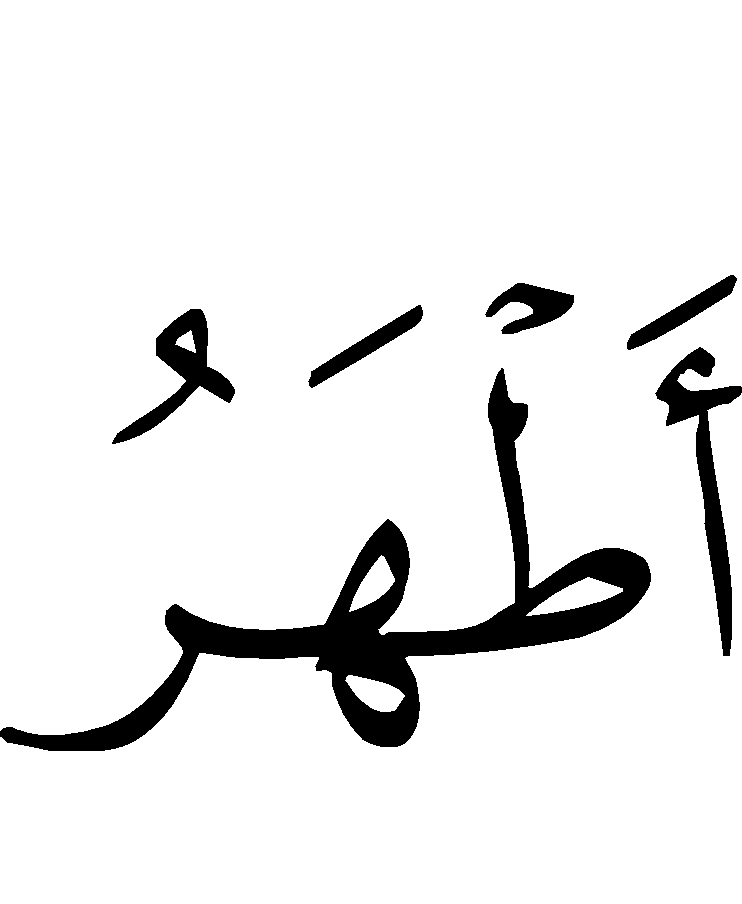 أَطْهَرُ